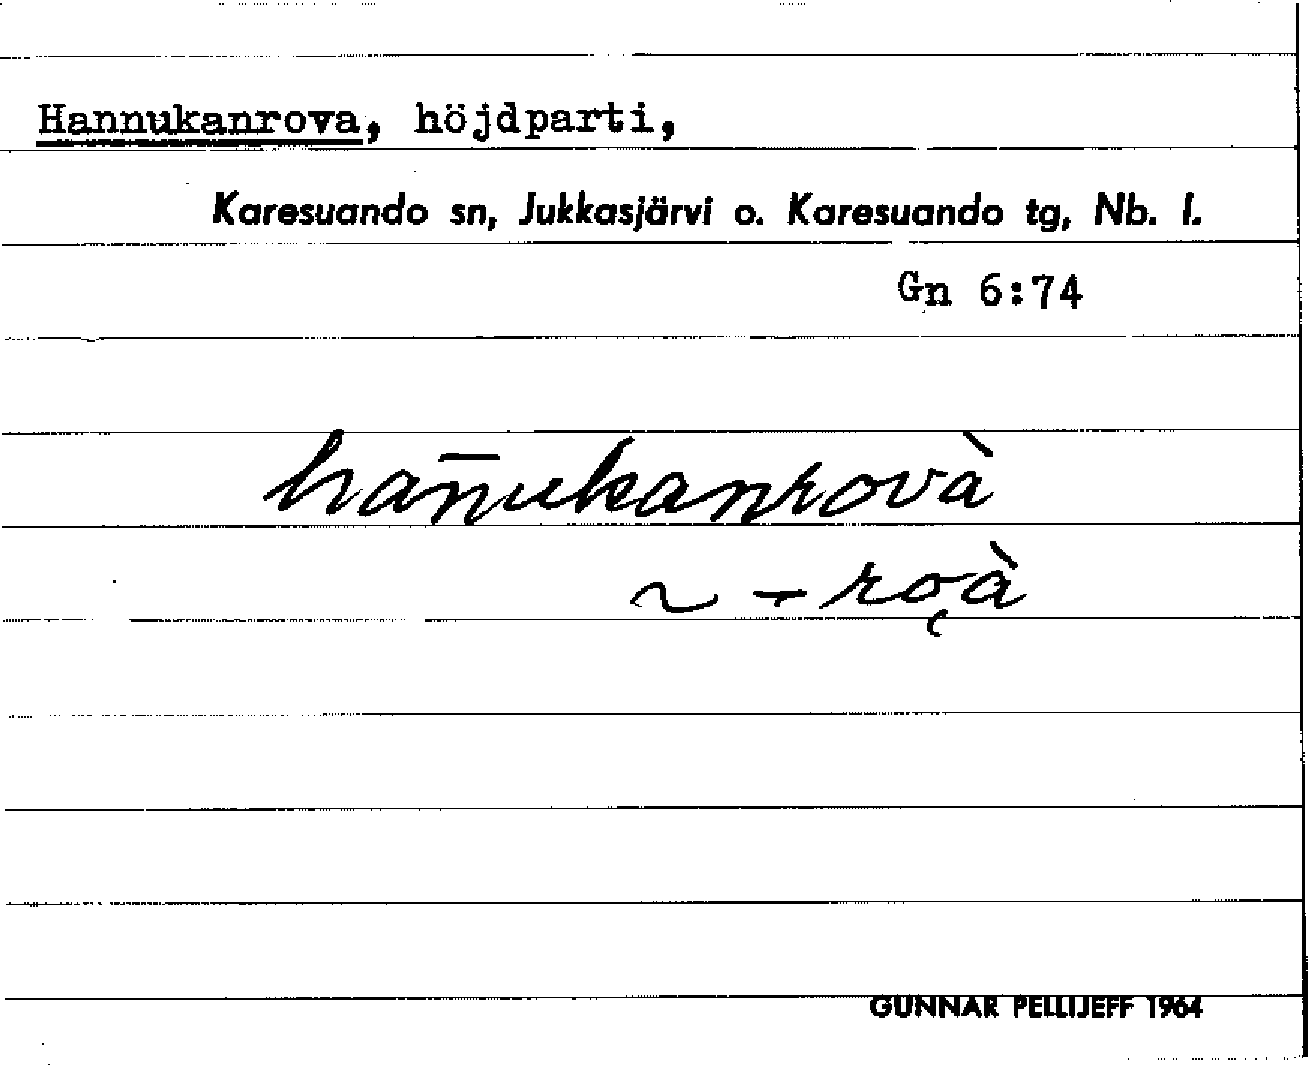 Hannukanrova, höjdparti,
Karesuando sn, Jukkasjärvi o. Karesuando tg, Nb. l.
Gn 6:74
han̄ukanrovà
~ -ro̜à
GUNNAR PELLIJEFF 1964